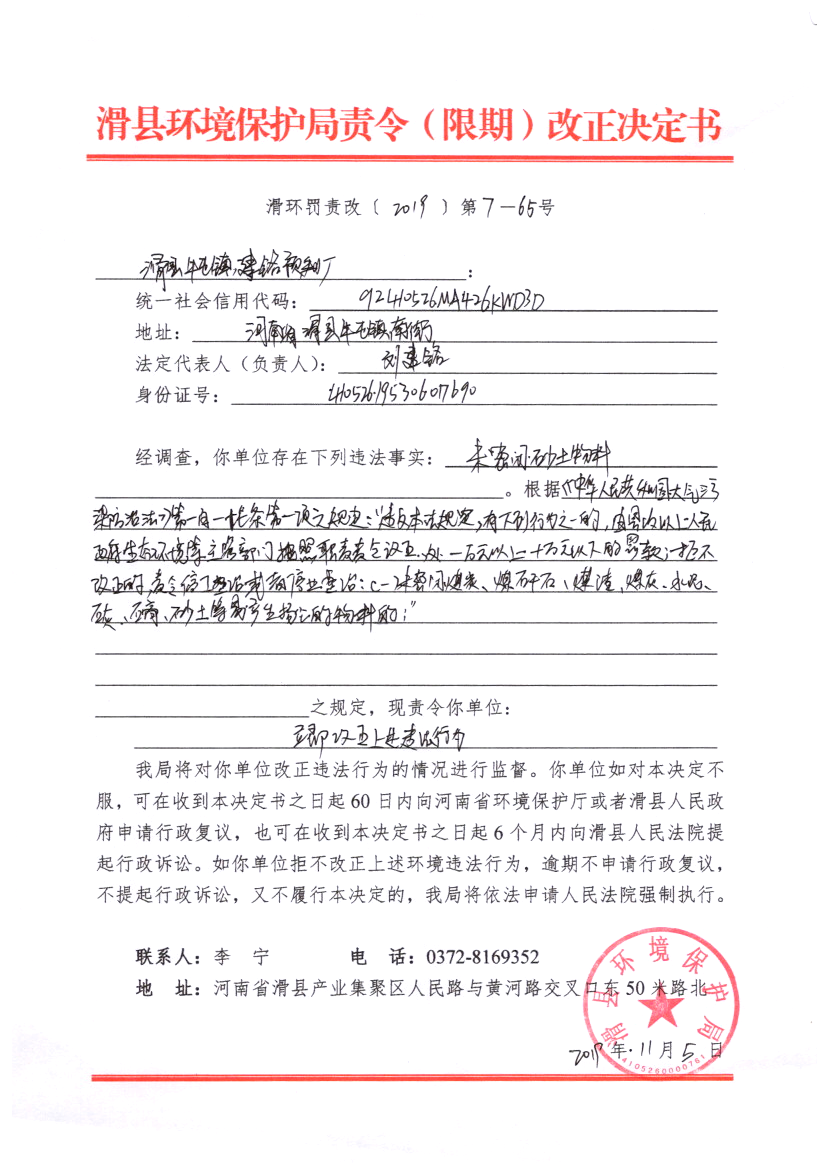 滑县环境保护局责令（限期）改正决定书
滑环罚责改〔 2019 〕第7-65号
滑县牛屯镇建铭预制厂：
统一社会信用代码： 92410526MA426KWD3D
地址： 河南省滑县牛屯镇南街
法定代表人（负责人）： 刘建铭
身份证号： 41052619530607690
经调查，你单位存在下列违法事实： 未密闭砂土物料
。根据《中华人民共和国大气污
染防治法》第一百一十七条第一项之规定：“违反本法规定，有下列行为之一的，由县级以上人民
政府生态环境等主管部门按照职责责令改正，处一万元以上十万元以下的罚款；拒不
改正的，责令停工整治或者停业整治：（一）未密闭煤炭、煤矸石、煤渣、煤灰、水泥、
石灰、石膏、砂土等易产生扬尘的物料的；”
之规定，现责令你单位：
立即改正上述违法行为
我局将对你单位改正违法行为的情况进行监督。你单位如对本决定不
服，可在收到本决定书之日起 60 日内向河南省环境保护厅或者滑县人民政
府申请行政复议，也可在收到本决定书之日起 6 个月内向滑县人民法院提
起行政诉讼。如你单位拒不改正上述环境违法行为，逾期不申请行政复议，
不提起行政诉讼，又不履行本决定的，我局将依法申请人民法院强制执行。
联系人：李 宁 电 话：0372-8169352
地 址：河南省滑县产业集聚区人民路与黄河路交叉口东 50 米路北
滑县环境保护局
2019年·11月5日
4105260000761